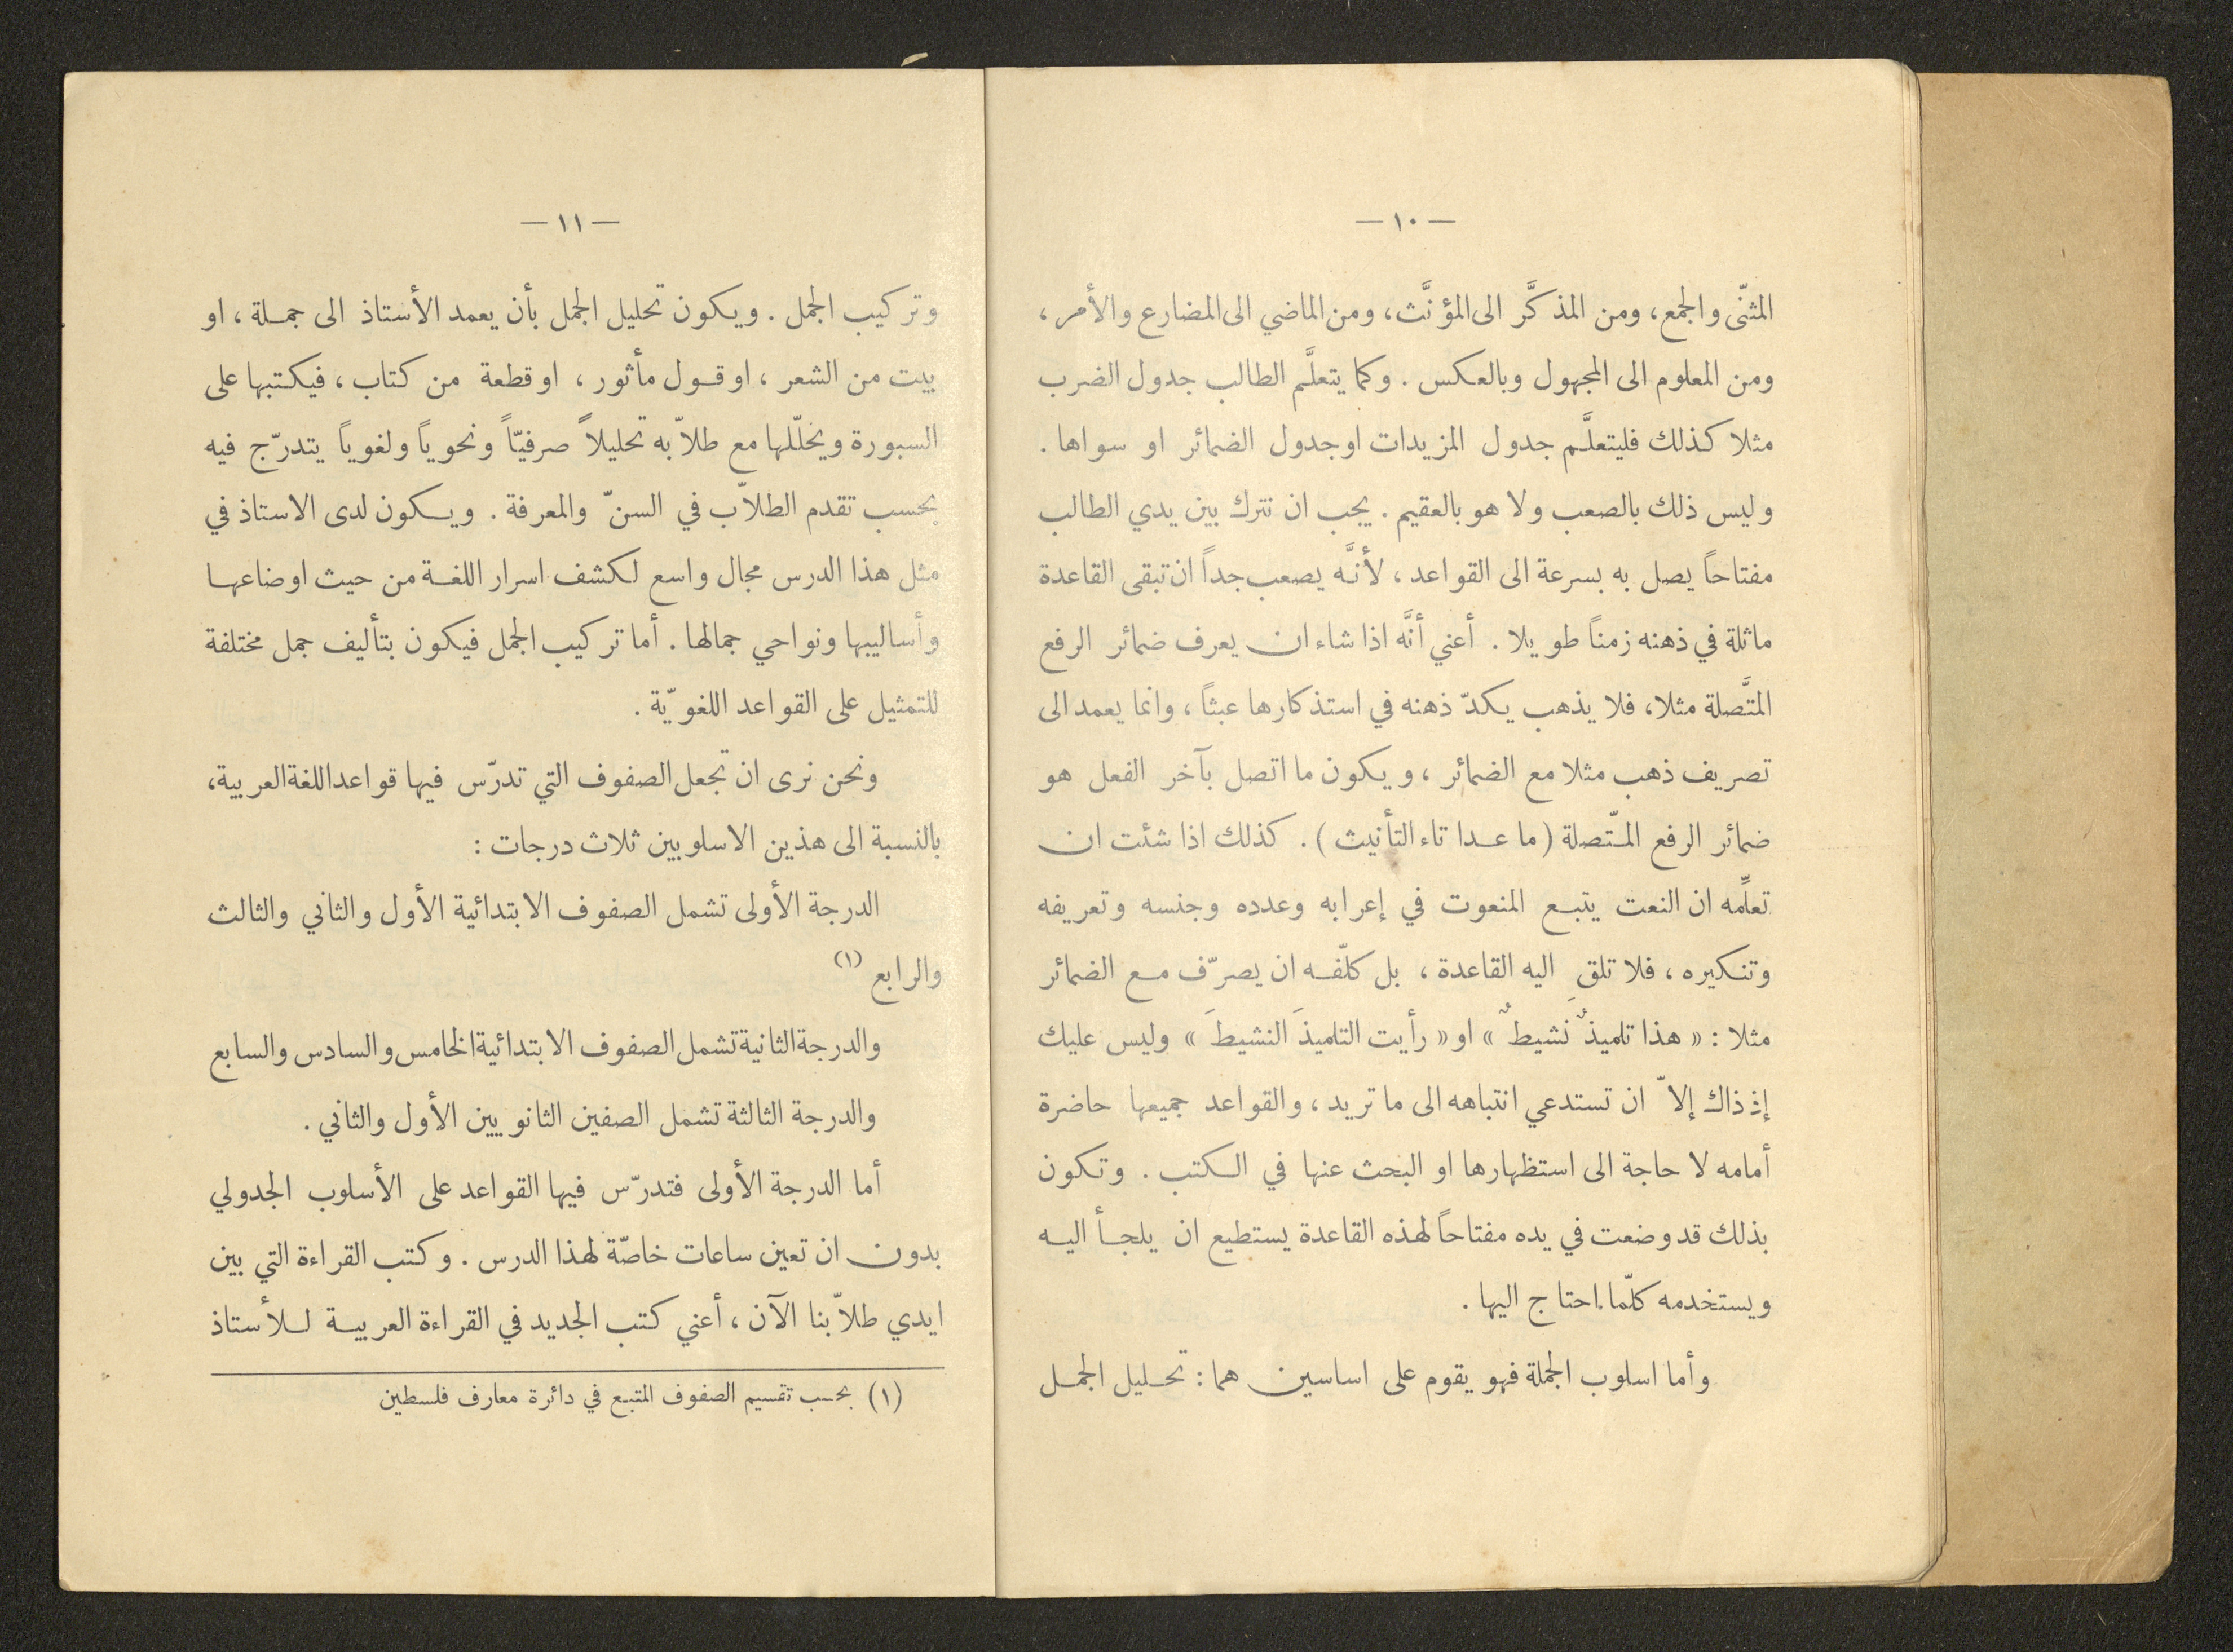 — ١٠ —
المثنّى والجمع، ومن المذكَّر الى المؤنَّث، ومن الماضي الى المضارع والأمر،
ومن المعلوم الى المجهول وبالعكس. وكما يتعلَّم الطالب جدول الضرب
مثلا كذلك فليتعلَّم جدول المزيدات او جدول الضمائر او سواها.
وليس ذلك بالصعب ولا هو بالعقيم. يجب ان نترك بين يدي الطالب
مفتاحاً يصل به بسرعة الى القواعد، لأنَّه يصعب جداً ان تبقى القاعدة
ماثلة في ذهنه زمناً طويلا. أعني أنَّه اذا شاء ان يعرف ضمائر الرفع
المتَّصلة مثلا، فلا يذهب يكدّ ذهنه في استذكارها عبثاً، وانما يعمد الى
تصريف ذهب مثلا مع الضمائر، ويكون ما اتصل بآخر الفعل هو
ضمائر الرفع المتّصلة (ما عدا تاء التأنيث). كذلك اذا شئت ان
تعلِّمه ان النعت يتبع المنعوت في إعرابه وعدده وجنسه وتعريفه
وتنكيره، فلا تلقِ اليه القاعدة، بل كلّفه ان يصرّف مع الضمائر
مثلا: «هذا تلميذٌ نشيطٌ» او «رأيت التلميذَ النشيطَ» وليس عليك
إذ ذاك إلاّ ان تستدعي انتباهه الى ما تريد، والقواعد جميعها حاضرة
أمامه لا حاجة الى استظهارها او البحث عنها في الكتب. وتكون
بذلك قد وضعت في يده مفتاحاً لهذه القاعدة يستطيع ان يلجأ اليه
ويستخدمه كلّما احتاج اليها.
وأما اسلوب الجملة فهو يقوم على اساسين هما: تحليل الجمل
— ١١ —
وتركيب الجمل. ويكون تحليل الجمل بأن يعمد الأستاذ الى جملة، او
بيت من الشعر، او قول مأثور، او قطعة من كتاب، فيكتبها على
السبورة ويحلّلها مع طلاّبه تحليلاً صرفيّاً ونحوياً ولغوياً يتدرّج فيه
بحسب تقدم الطلاّب في السنّ والمعرفة. ويكون لدى الاستاذ في
مثل هذا الدرس مجال واسع لكشف اسرار اللغة من حيث اوضاعها
وأساليبها ونواحي جمالها. أما تركيب الجمل فيكون بتأليف جمل مختلفة
للتمثيل على القواعد اللغويّة.
ونحن نرى ان تجعل الصفوف التي تدرّس فيها قواعد اللغة العربية،
بالنسبة الى هذين الاسلوبين ثلاث درجات:
الدرجة الأولى تشمل الصفوف الابتدائية الأول والثاني والثالث
والرابع (١)
والدرجة الثانية تشمل الصفوف الابتدائية الخامس والسادس والسابع
والدرجة الثالثة تشمل الصفين الثانويين الأول والثاني.
أما الدرجة الأولى فتدرّس فيها القواعد على الأسلوب الجدولي
بدون ان تعين ساعات خاصّة لهذا الدرس. وكتب القراءة التي بين
ايدي طلاّبنا الآن، أعني كتب الجديد في القراءة العربية للأستاذ
(١) بحسب تقسيم الصفوف المتبع في دائرة معارف فلسطين